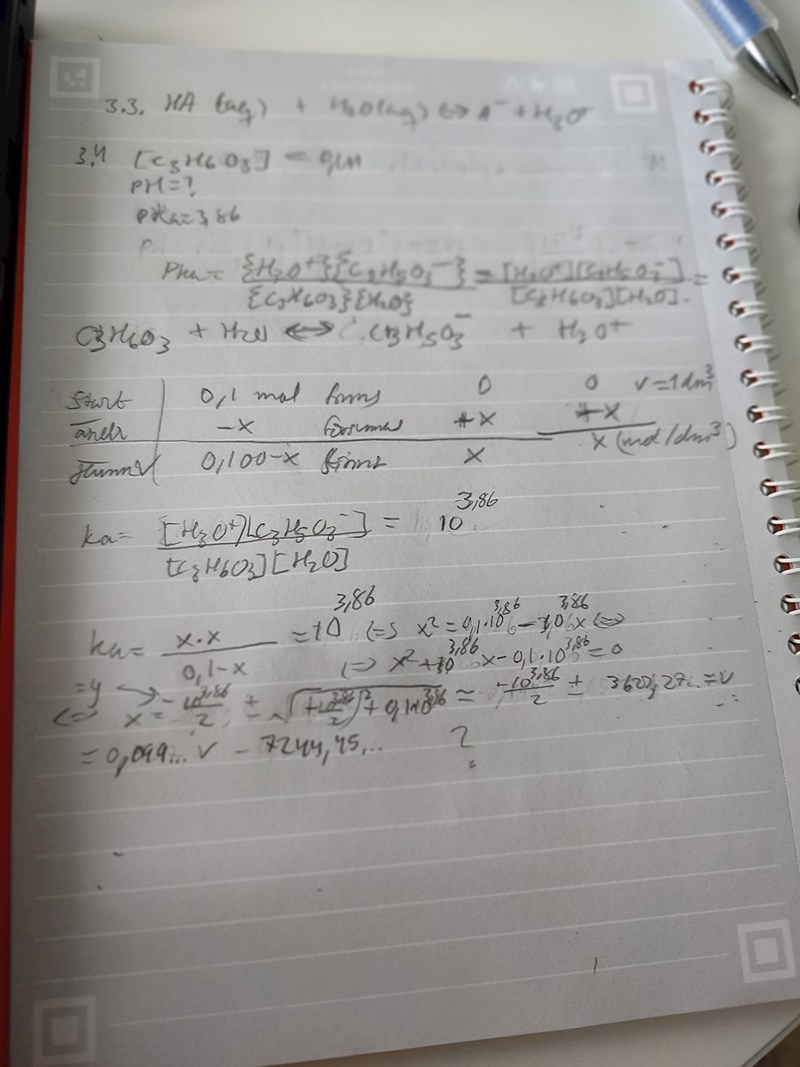 3.3. HA (aq) + H₂O(aq) ⇔ A⁻ + H₃O⁺
3.4 [C₃H₆O₃] = 0,1M
PH=?
pKa=3,86
P
Pka= {H₃O⁺}{C₃H₅O₃⁻} / {C₃H₆O₃}{H₂O} = [H₃O⁺][C₃H₅O₃⁻] / [C₃H₆O₃][H₂O]. =
C₃H₆O₃ + H₂O ⇔ C₃H₅O₃⁻ + H₃O⁺
Start | 0,1 mol finns 0 0 V=1dm³
-x +x +x
0,100-x finns x x (mol/dm³)
ka= [H₃O⁺][C₃H₅O₃⁻] / [C₃H₆O₃][H₂O] = 10^3,86
ka= x·x / 0,1-x = 10^3,86 ⇔ x² = 0,1·10^3,86 - 10^3,86 x ⇔
⇔ x² + 10^3,86 x - 0,1·10^3,86 = 0
=y
⇔ x = -10^3,86/2 ± √((+10^3,86/2)² + 0,1·10^3,86) = -10^3,86/2 ± 3622,27.. = v
= 0,099... v - 7244,45... ?